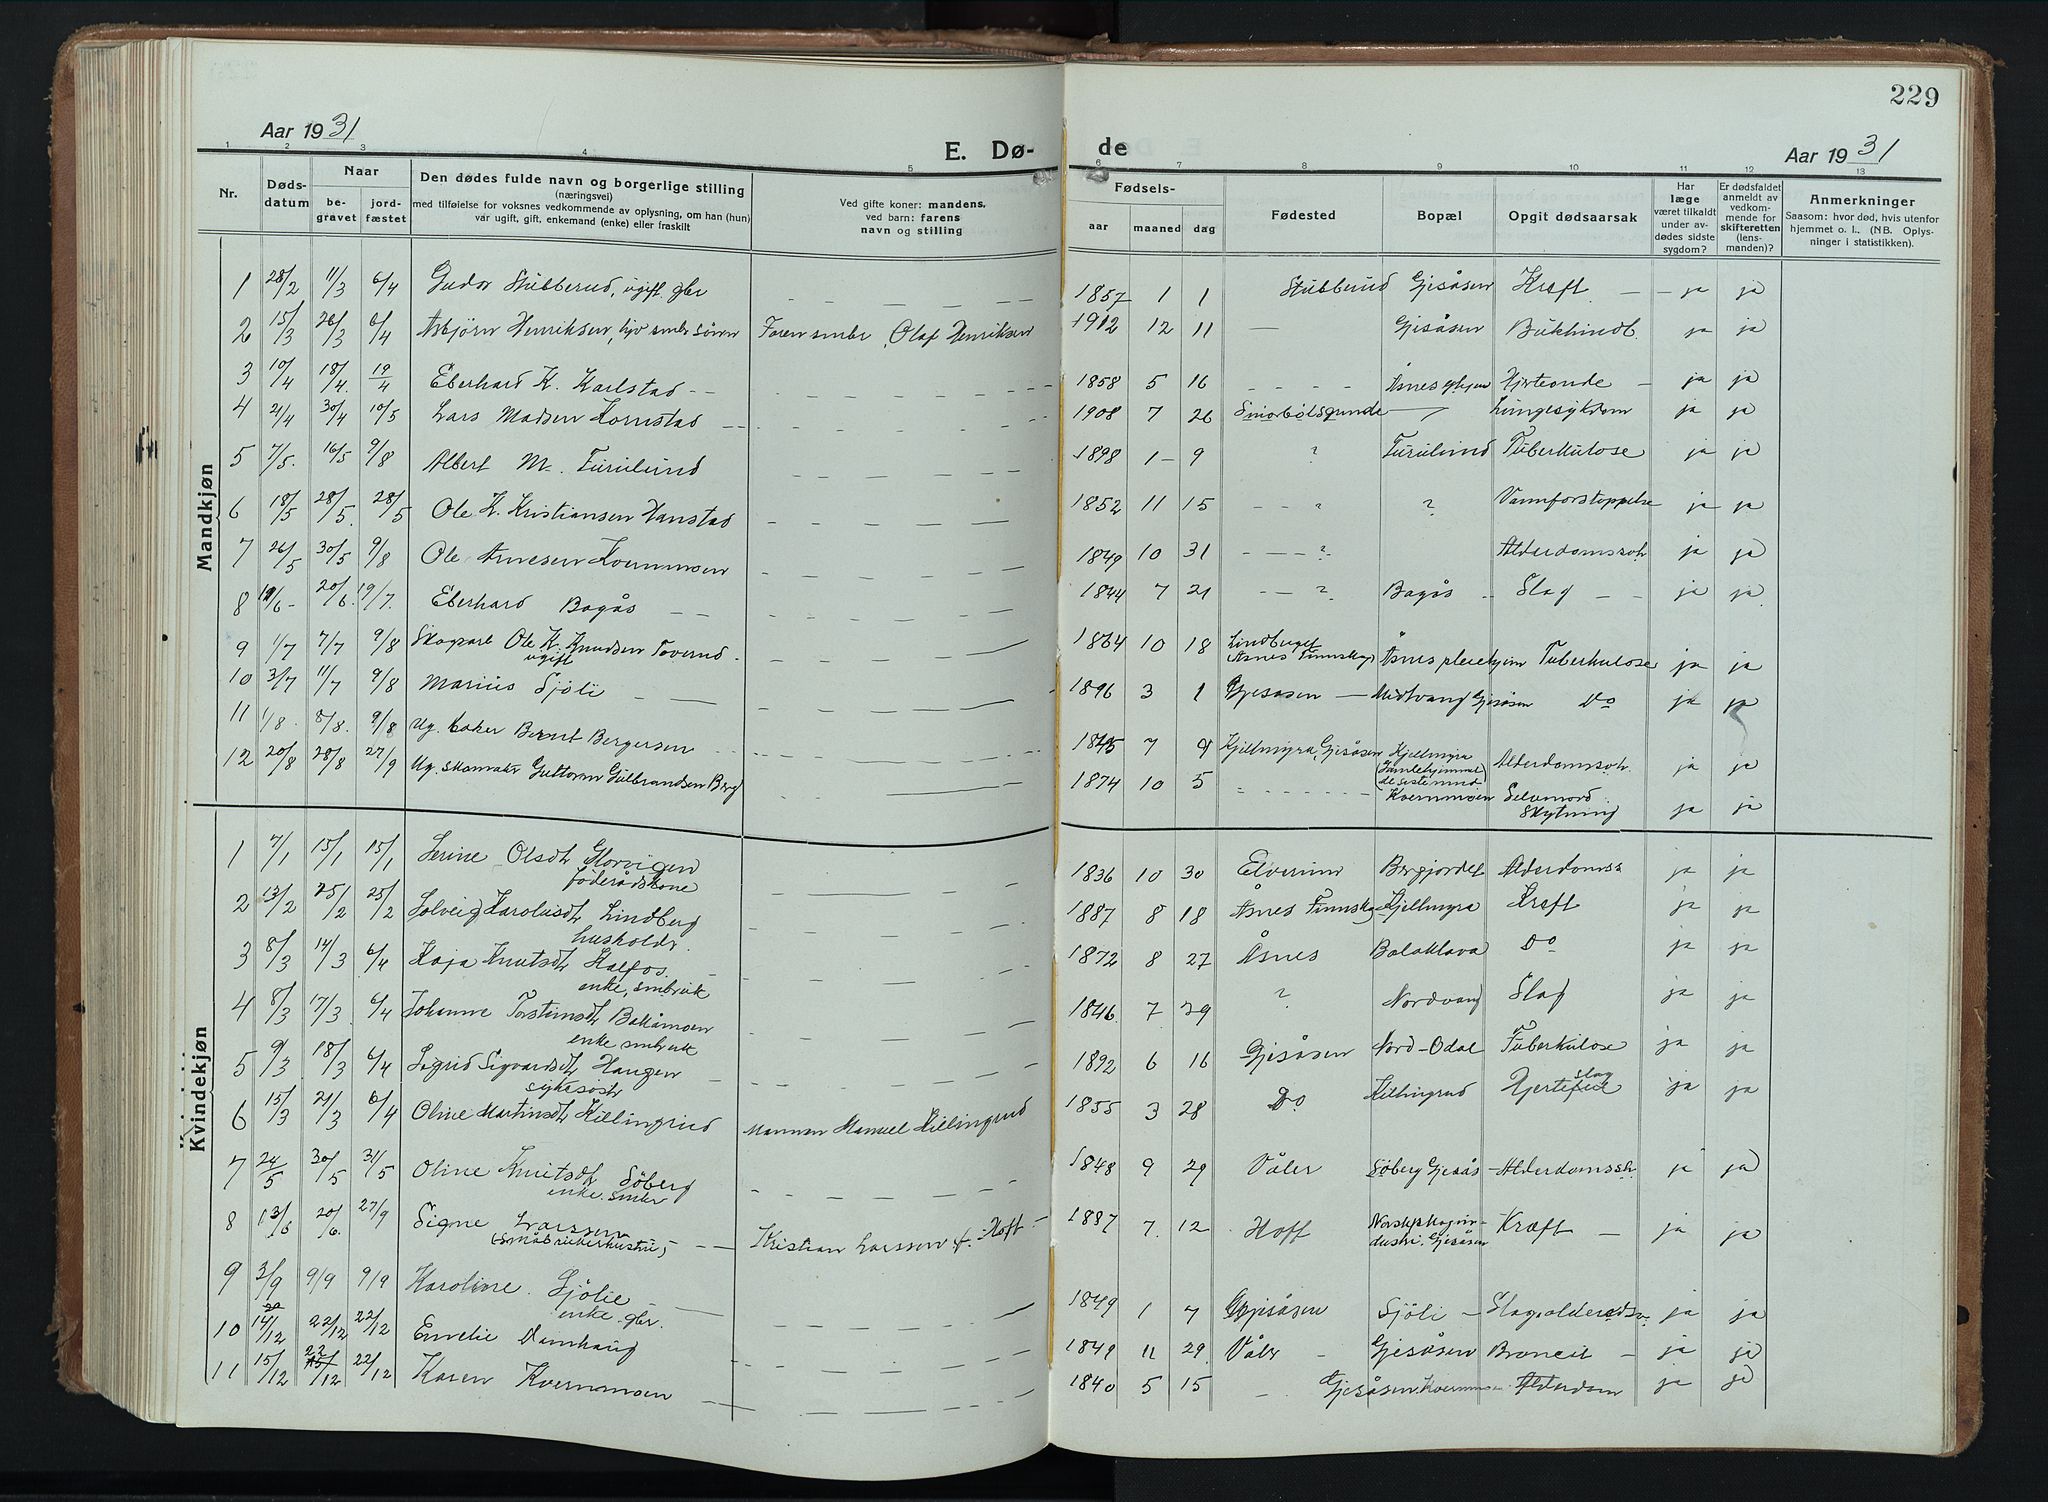 229
Aar 1931
E. Dø-
de
Aar 1931
1 2 3 4 5 6 7 8 9 10 11 12 13
Nr.
Døds-
datum
Naar
be-
gravet
jord-
fæstet
Den dødes fulde navn og borgerlige stilling
(næringsvei)
med tilføielse for voksnes vedkommende av oplysning, om han (hun)
var ugift, gift, enkemand (enke) eller fraskilt
Ved gifte koner: mandens,
ved barn: farens
navn og stilling
Fødsels-
aar maaned dag
Fødested
Bopæl
Opgit dødsaarsak
Har
læge
været tilkaldt
under av-
dødes sidste
sygdom?
Er dødsfaldet
anmeldt av
vedkom-
mende for
skifteretten
(lens-
manden)?
Anmerkninger
Saasom: hvor død, hvis utenfor
hjemmet o. l.. (NB. Oplys-
ninger i statistikken).
Mandkjøn
1 28/2 11/3 6/4 Gudor Stubberud, ugift. gbr 1857 1 1 Stubberud Gjesåsen Kræft ja ja
2 15/3 26/3 6/4 Asbjørn Henriksen, hjv smbr sønn Faren smbr, Olaf Henriksen 1912 12 11 Gjesåsen Bukhindb. ja ja
3 10/4 18/4 19/4 Eberhard K. Karlstad 1858 5 16 Åsnes glhjem Hjerteonde ja ja
4 21/4 30/4 10/5 Lars Madsen Kornstad 1908 7 26 Lungesykdom ja ja
5 7/5 16/5 9/8 Albert M. Furulund 1898 1 9 ? Furulund Tuberkulose ja ja
6 18/5 28/5 28/5 Ole K. Kristiansen Hanstad 1852 11 15 ? ? Vannforstoppelse ja ja
7 26/5 30/5 9/8 Ole Arnesen Kvernmoen 1849 10 31 ? Alderdomssvk ja ja
8 /6 20/6 19/7 Eberhard Bogås 1844 7 21 ? Bogås Slag ja ja
9 1/7 7/7 9/8 Skogsarb Ole K. Knudsen Toverud
ugift
1864 10 18 Lindberget
Åsnes Finnskog Åsnes pleiehjem Tuberkulose ja ja
10 3/7 11/7 9/8 Marius Sjöli 1896 3 1 Gjesåsen Midtvang Gjesåsen Do ja ja
11 1/8 8/8 9/8 Ug. baker Bernt Bergersen 1845 7 9 Kjellmyra, Gjesåsen Kjellmyra
(Gamlehjemmet)
Alderdomssvk. ja ja
12 20/8 28/8 27/9 Ug. skomaker Guttorm Gulbrandsen Berg 1874 10 5 Kvernmoen Selvmord
Skytning ja ja
Kvindekjøn
1 7/1 15/1 15/1 Serine Olsdtr Storvigen
föderådskone
1836 10 30 Elverum Bergjordet Alderdomss ja ja
2 13/2 25/2 25/2 Solveig Karolusdtr Lindberg
husholdr.
1887 8 18 Åsnes Finnskog Kjellmyra Kræft ja ja
3 8/3 14/3 6/4 Kaja Knutsdtr Kalfos
enke, smbruk
1872 8 27 Åsnes Balaklava Do ja ja
4 8/3 17/3 6/4 Johanne Torstensdtr Bakåmoen
enke smbruk
1846 7 29 ? Nordvang Slag ja ja
5 9/3 18/3 6/4 Sigrid Sigvardsdtr Haugen
sykesöstr
1892 6 16 Gjesåsen Nord-Odal Tuberkulose ja ja
6 15/3 21/3 6/4 Oline Martinsdtr Killingrud Mannen Manuel Killingrud 1855 3 28 Do Killingrud Hjerteslag ja ja
7 24/5 30/5 31/5 Oline Knutsdtr Söberg
enke. smbr
1848 9 29 Våler Söberg Gjesås Alderdomssvk ja ja
8 13/6 20/6. 27/9 Signe Larssen
(småbrukerhustru)
Kristian Larssen f. Hoft 1887 7. 12 Hoff Norsk skogin-
dustri, Gjesåsen Kræft ja ja
9 3/9 9/9 9/9 Karoline Sjölie
enke gbr.
1849 1 7 Gjesåsen Sjöli Slag, alderdsv. ja ja
10 14/12 22/12 22/12 Emelie Damhaug 1849 11 29 Våler Gjesåsen Broncit ja ja
11 15/12 22/12 22/12 Karen Kvernmoen 1840 5 15 Gjesåsen Kvernmoen Alderdom ja ja